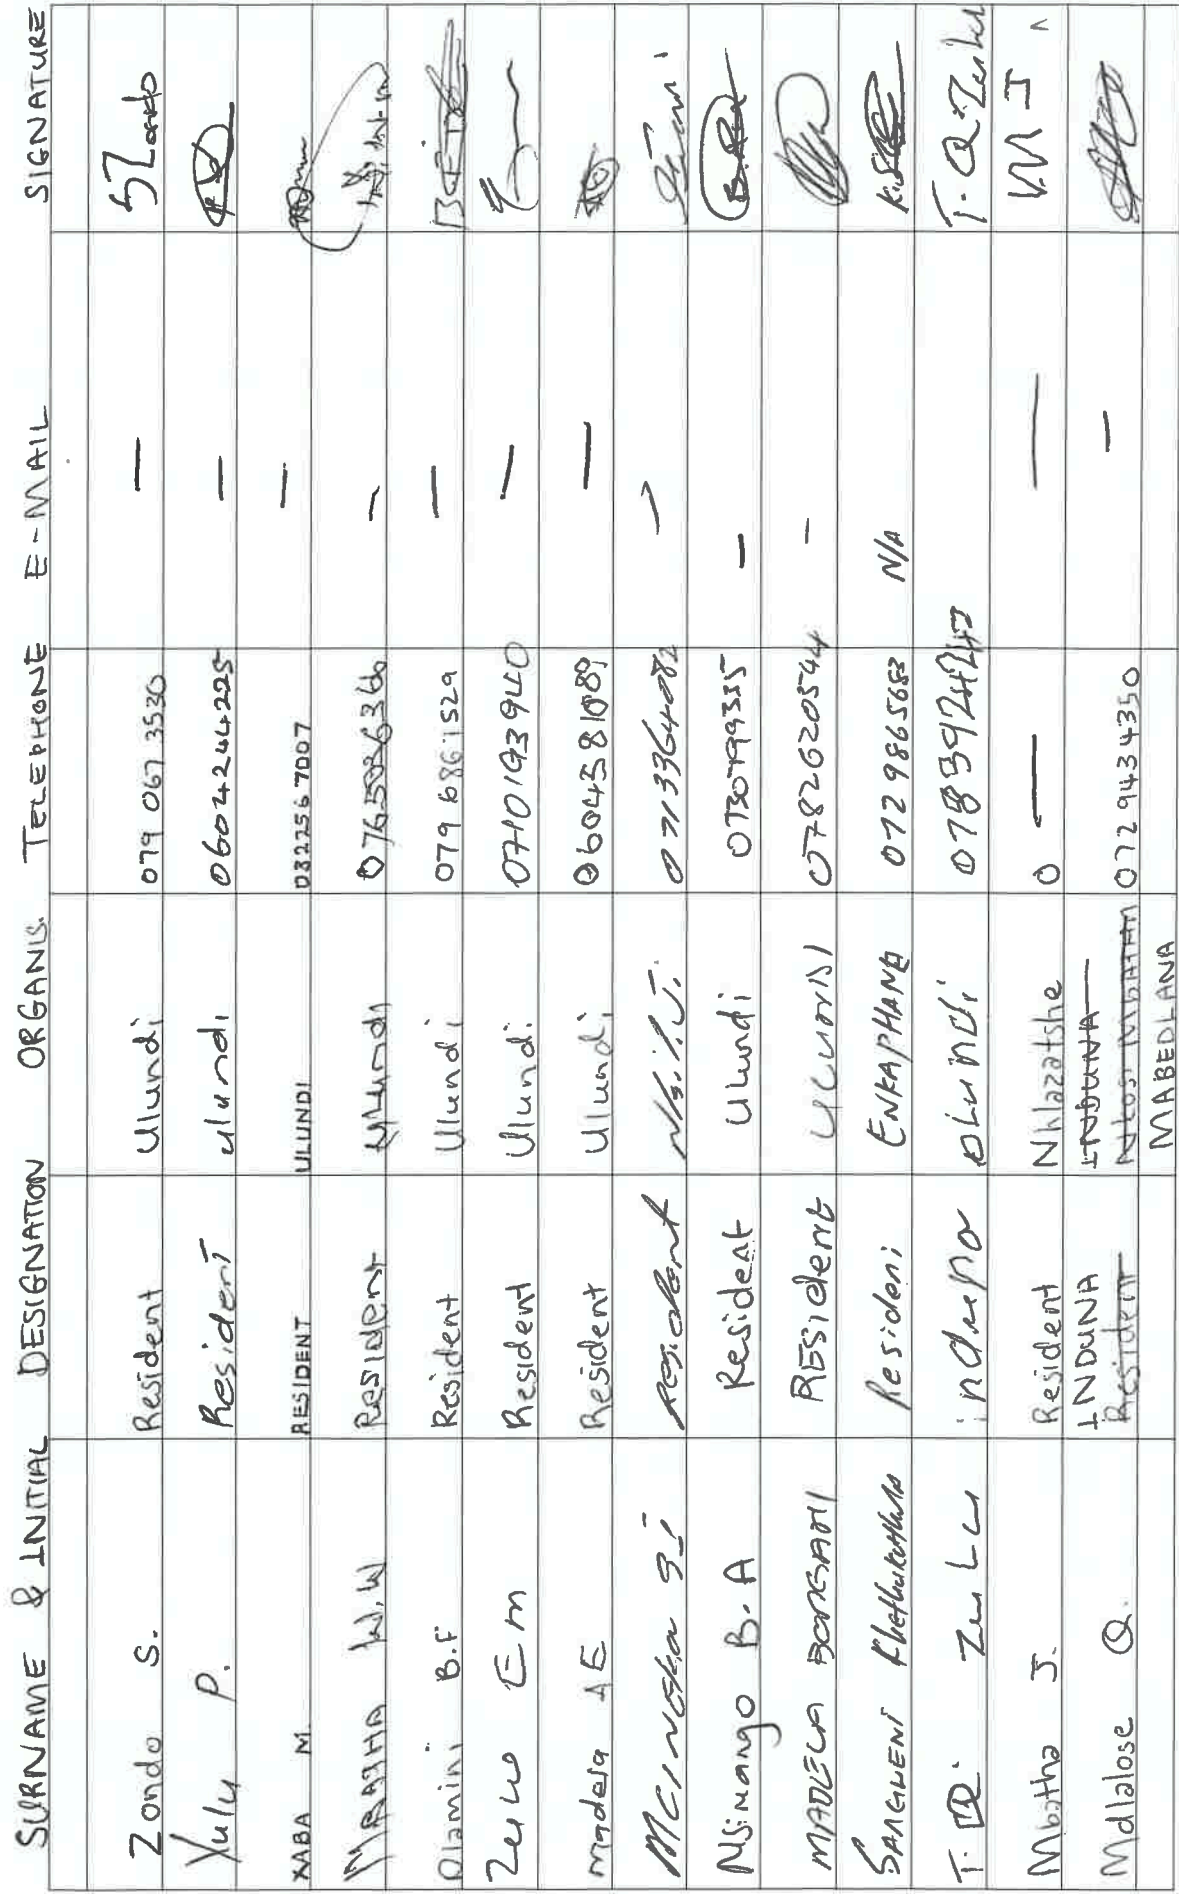 SURNAME & INITIAL DESIGNATION ORGANIS. TELEPHONE E-MAIL SIGNATURE
Zondo S. Resident Ulundi 079 067 3530 — SZondo
Xulu P. Resident ulundi 0604244225 —
XABA M. RESIDENT ULUNDI 032256 7007 —
W.W Resident Ulundi —
Dlamini B.F Resident Ulundi 079 6861529 —
Zulu E m Resident Ulundi 0710193940 —
madela AE Resident Ulundi 0604581089 —
Resident
Nsimango B. A Resident Ulundi 0730799335 —
MADELA BONGANI RESIDENT ULUNDI 0782620544 —
SANGWENI Resident ENKAPHANA 0729865683 N/A
T. Q. ZuLu induna uLundi T. Q. Zulu
Mbatha J. Resident Nhlazatshe 0 — — M J
Mdlalose Q. INDUNA Resident INDUNA Nkosi Mbatha MABEDLANA 0729434350 —